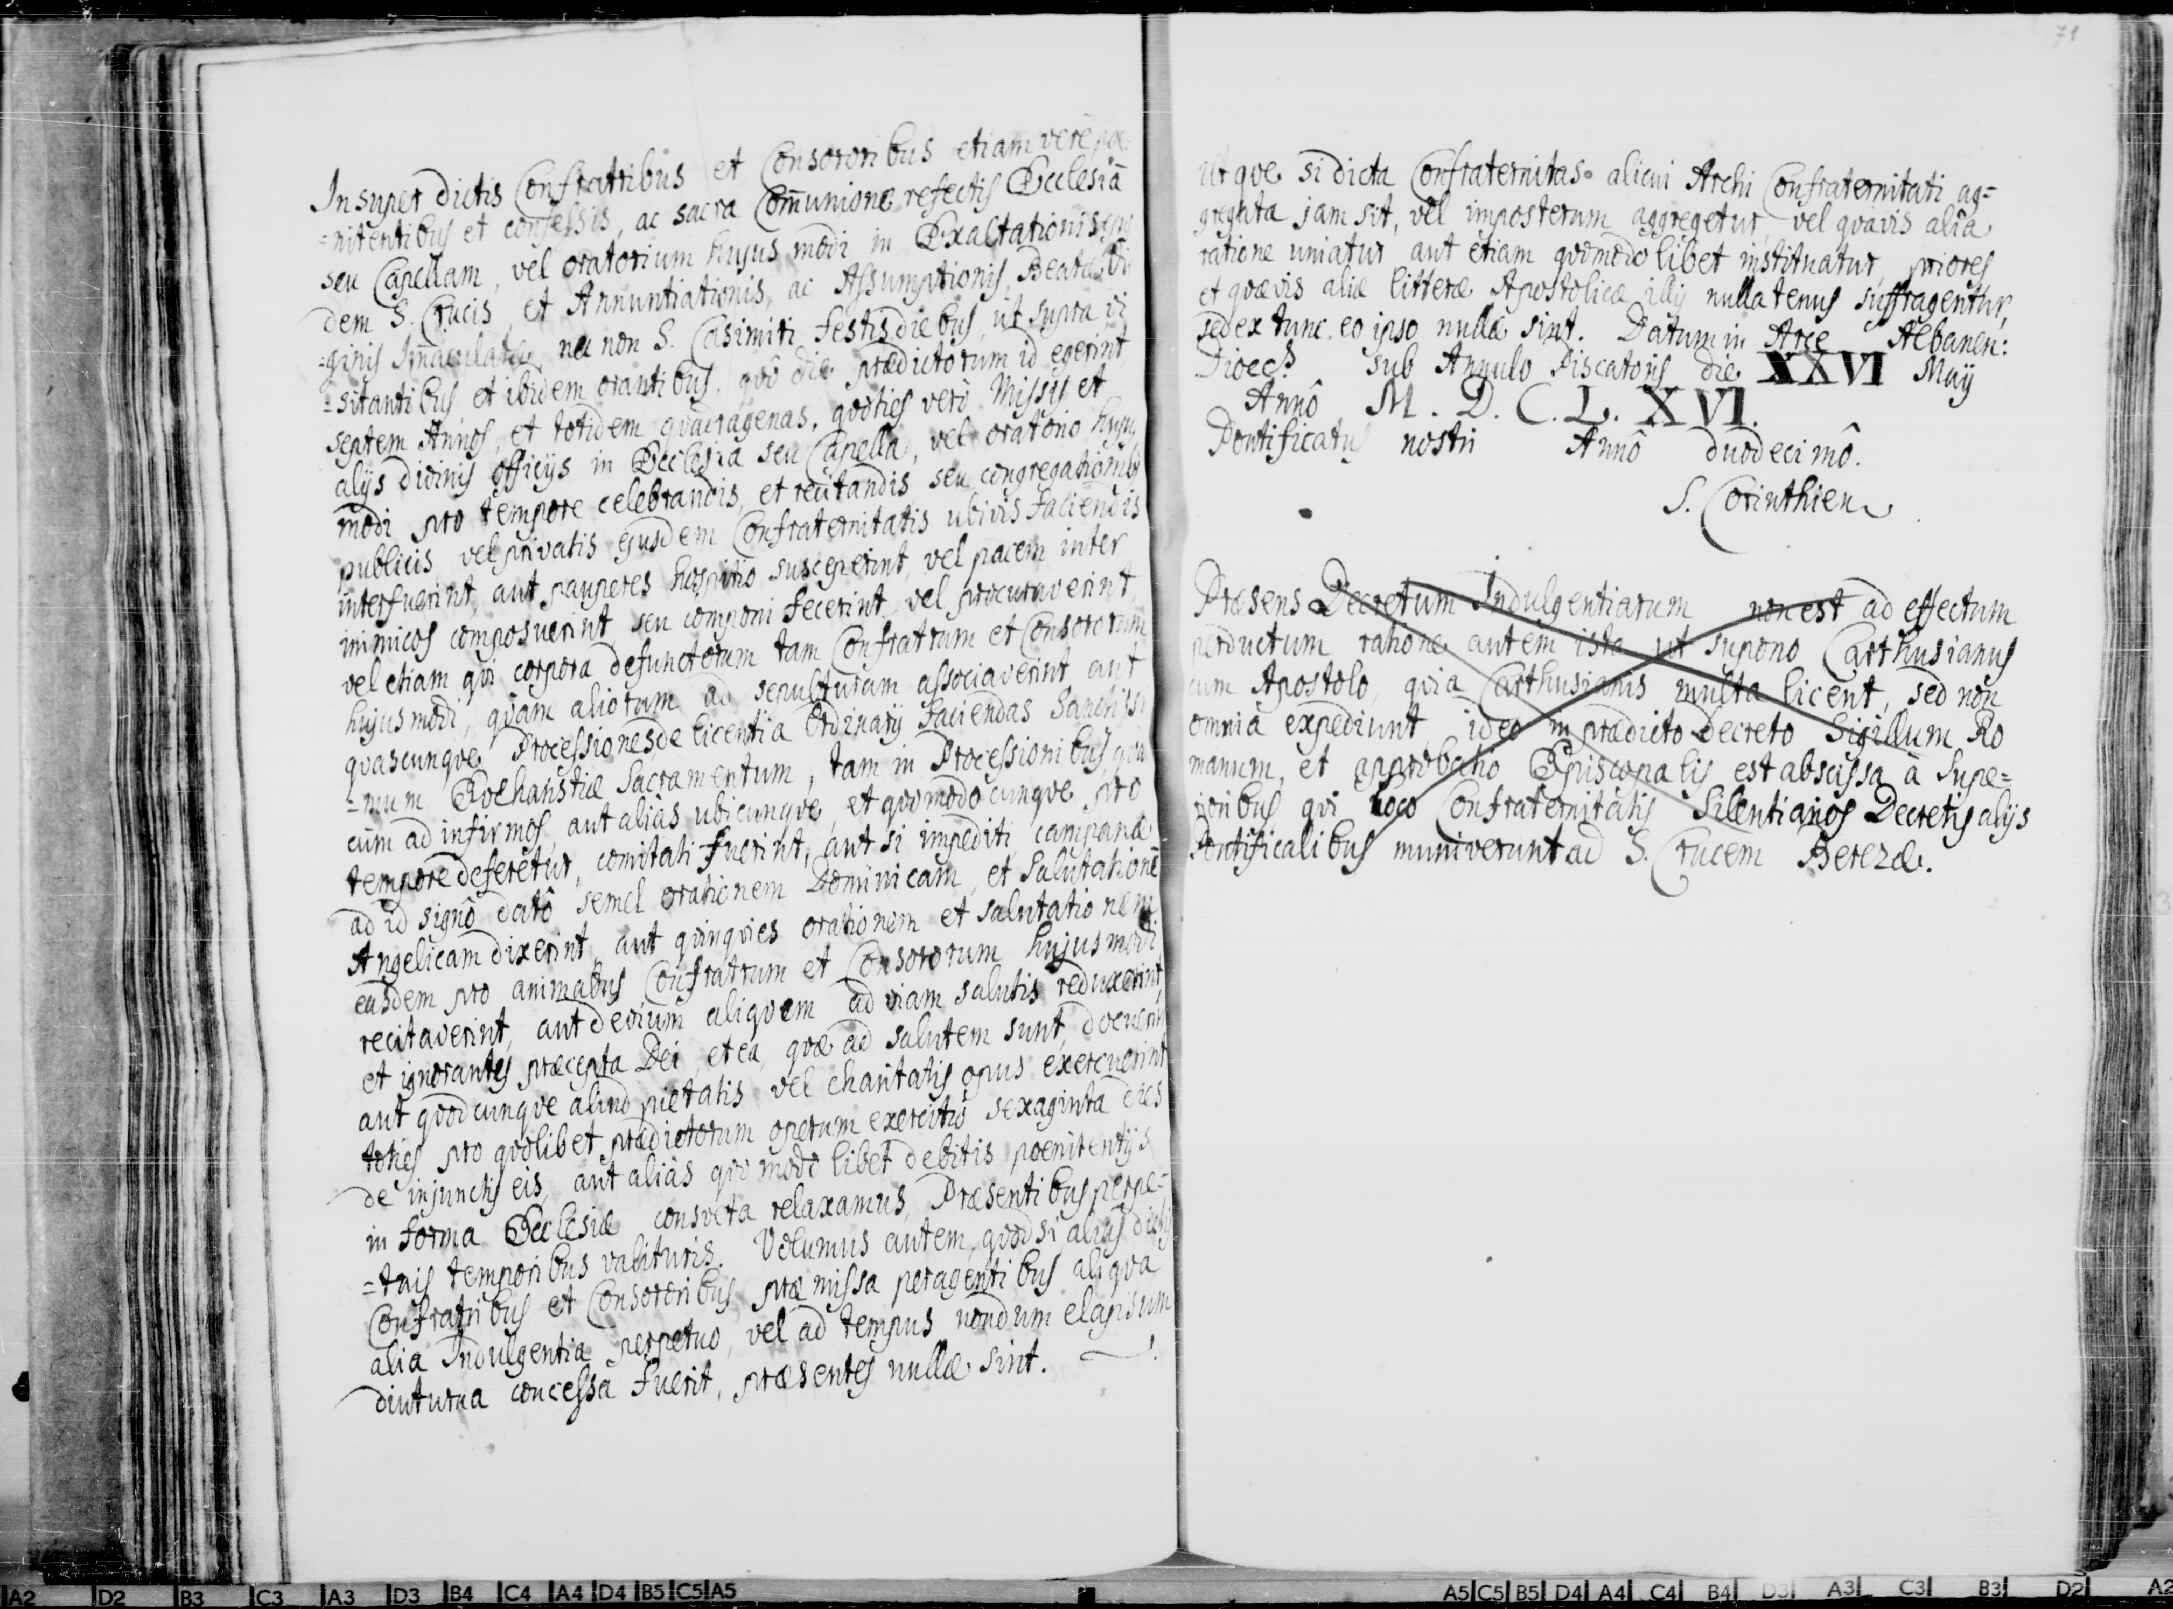 In super dictis Confratribus et Consororibus etiam verè pæ
=nitentibus et confessis, ac sacra Com̄unione refectis Ecclesiā
seu Capellam, vel oratorium hujus modi in Exaltationis
dem S. Crucis, et Annuntiationis, ac Assumptionis Beatæ Vir
=ginis Imaculatæ nec non S. Casimiri festis diebus, ut supra vi
=sitantibus, et ibidem orantibus. quô die prædictorum id egerint
septem Annos, et totidem quadragenas, quoties verò Missis et
alijs divinis officijs in Ecclesia seu Capella, vel oratorio huju
modi pro tempore celebrandis, et recitandis, seu congregationibs
publicis, vel privatis ejusdem Confraternitatis ubivis faciendis
interfuerint, aut pauperes hospitio susceperint, vel pacem inter
inimicos composuerint seu componi fecerint, vel procuraverint,
vel etiam qui corpora defunctorum tam Confratrum et Consororum
hujusmodi, quàm aliorum ad sepulturam associaverint, aut
quascunque Processiones de licentia Ordinarij faciendas Sanctissi
=mum Eucharistiæ Sacramentum, tam in Processionibus, quà
cùm ad infirmos, aut aliàs ubicunque, et quomodocunque pro
tempore deferetur, comitati fuerint, aut si impediti campanæ
ad id signô datô semel orationem Dominicam, et Salutationē
Angelicam dixerint, aut quinquies orationem et salutationem
easdem pro animabus Confratrum et Consororum hujusmodi
recitaverint, aut devium aliquem ad viam salutis reduxerint,
et ignorantes præcepta Dei, et ea, quæ ad salutem sunt, docuerint
aut quodcunque aliud pietatis, vel charitatis opus exercuerint
toties pro quolibet prædictorum operum exercitio sexaginta dies
de injunctis eis, aut aliàs quomodo libet debitis poenitentijs
in forma Ecclesiæ consveta relaxamus, Præsentibus perpe-
=tuis temporibus valituris. Volumus autem, quòd si aliàs dictis
Confratribus et Consororibus præmissa peragentibus aliqua
alia Indulgentia perpetuo, vel ad tempus nondum elapsum
diuturna concessa fuerit, præsentes nullæ sint.
71
Utque si dicta Confraternitas alicui Archi Confraternitati ag=
gregata jam sit, vel imposterum aggregetur, vel quavis aliâ
ratione uniatur aut etiam quomodo libet instituatur, priores
et quævis aliæ litteræ Apostolicæ illis nullatenus suffragentur,
sed ex tunc eo ipso nullæ sint. Datum in Arce Albanen:
Dioec. sub Annulo Piscatoris die XXVI Maij
Annô M. D. C. L. X VI.
Pontificatus nostri Annô duodecimô.
S. Corinthien
Præsens Decretum Indulgentiarum non est ad effectum
perductum ratione autem ista ut supono Carthusianus
cum Apostolo, quia Carthusianis multa licent, sed non
omnia expediunt, ideo in prædicto Decreto Sigillum Ro
manum, et approbatio Episcopalis est abscissa à Supe=
rioribus qui loco Confraternitatis Silentiarios Decretis alijs
Pontificalibus muniverunt ad S. Crucem Berezæ.
A2 D2 B3 C3 A3 D3 B4 C4 A4 D4 B5 C5 A5
A5 C5 B5 D4 A4 C4 B4 D3 A3 C3 B3 D2 A2